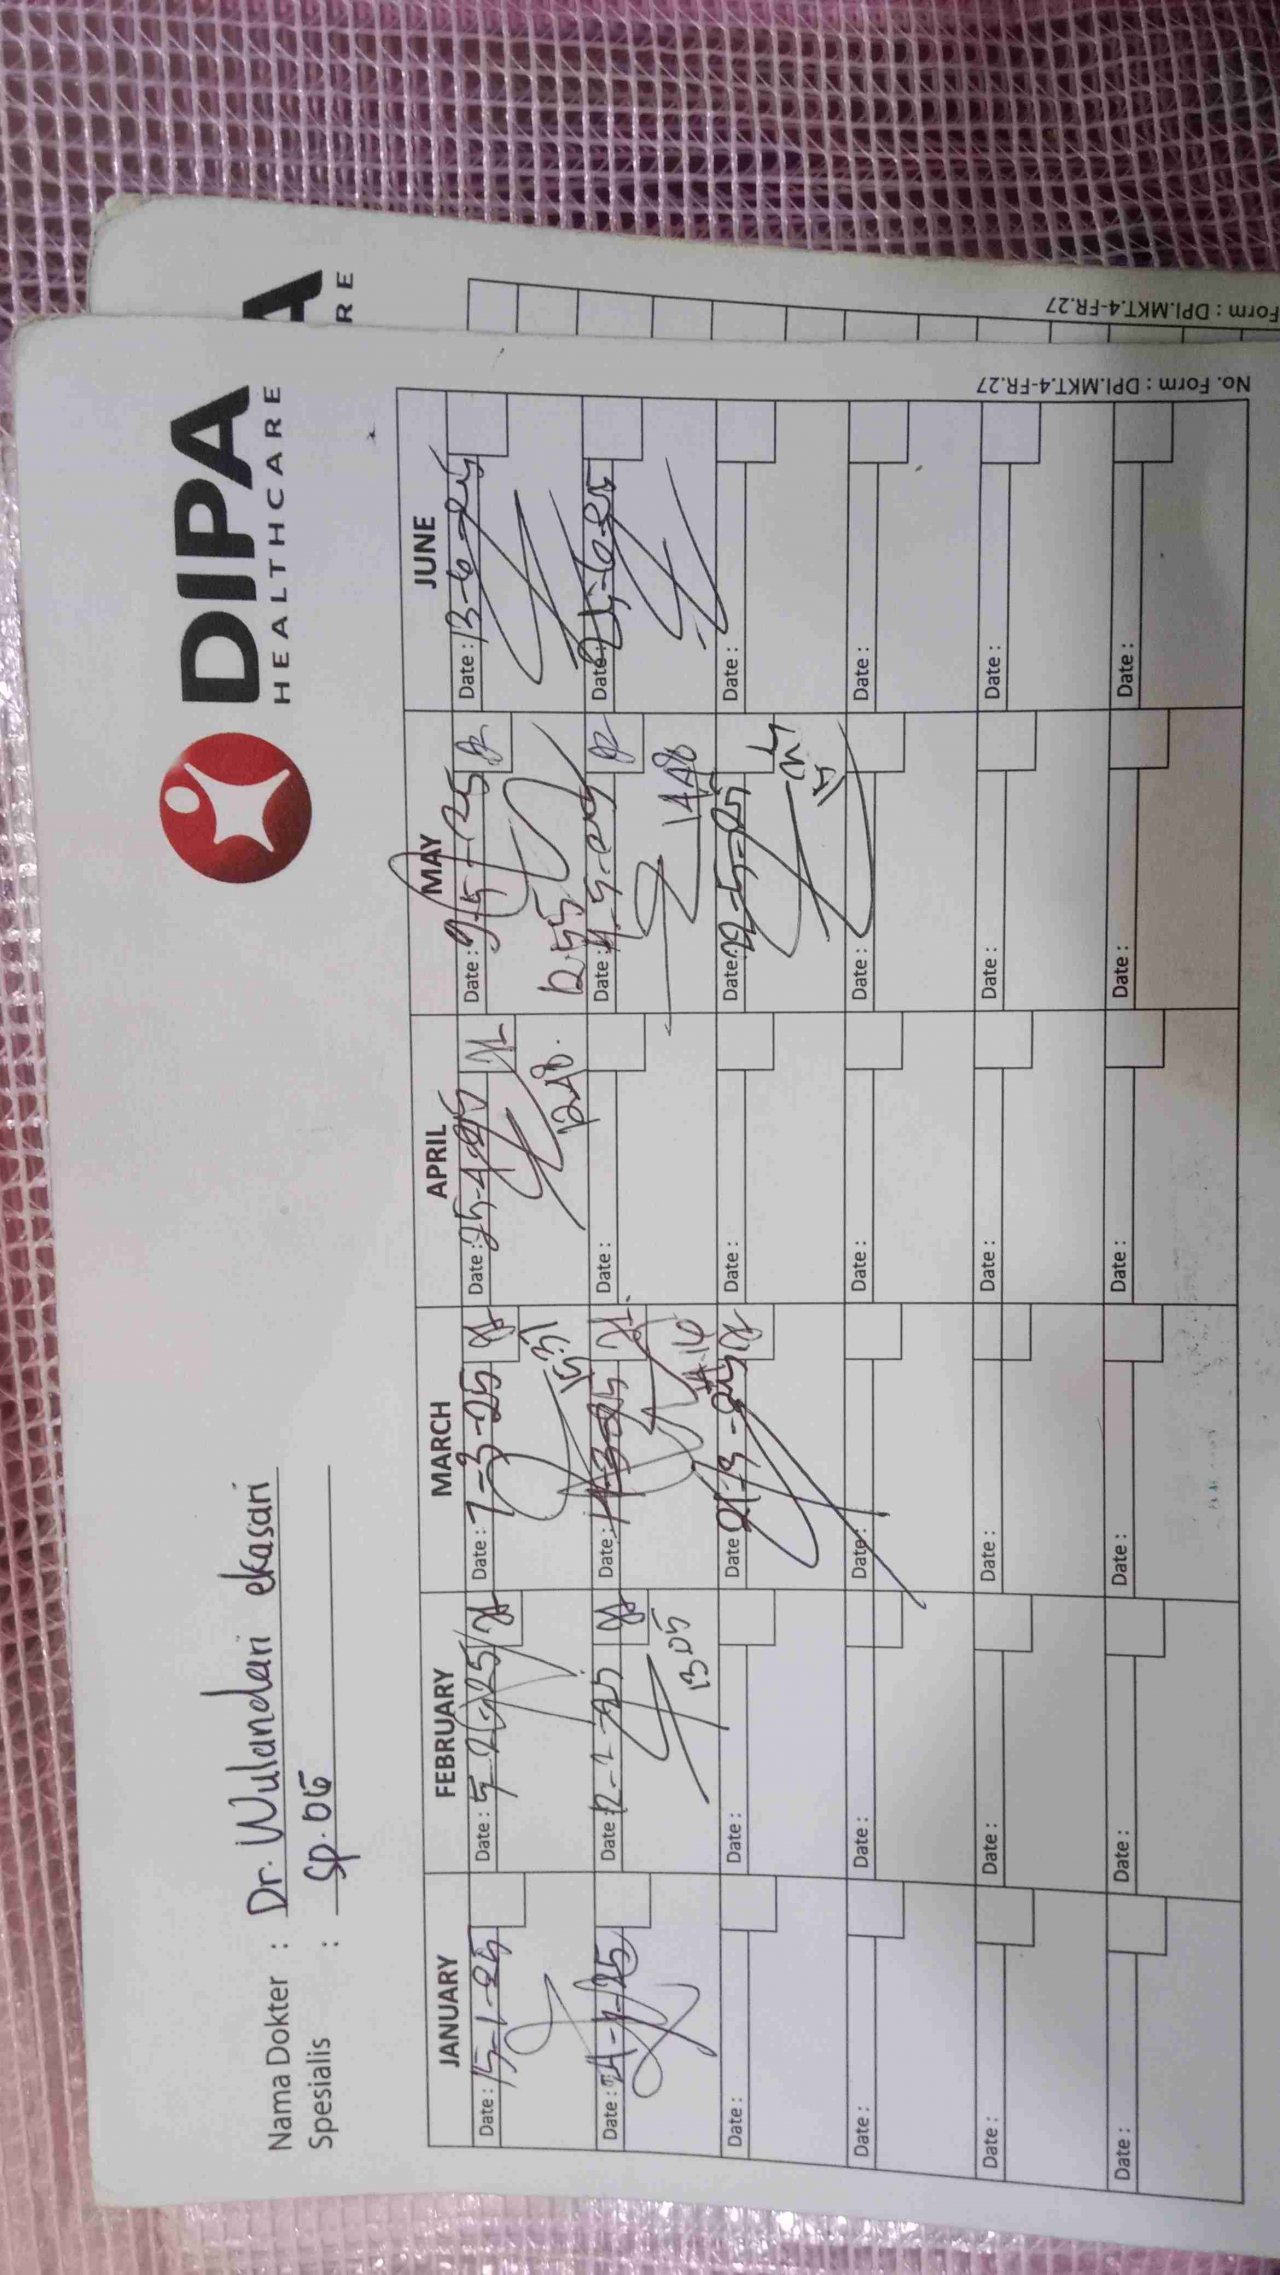 DIPA
HEALTHCARE
Nama Dokter : Dr. Wulandari ekasari
Spesialis : Sp. OG
JANUARY FEBRUARY MARCH APRIL MAY JUNE
Date : 15-1-25 Date : 5-2-25 Date : 7-3-25 Date : 25-4-25 Date : 9-5-25 Date : 13-6-25
15:31 12.48. 12.55
Date : 24-1-25 Date : 12-2-25 Date : 14-3-25 Date : Date : 14-5-25 Date : 24-6-25
13.05 14.16 14.48
Date : Date : Date : 21-3-25 Date : Date : 22-5-25 Date :
Date : Date : Date : Date : Date : Date :
Date : Date : Date : Date : Date : Date :
Date : Date : Date : Date : Date : Date :
No. Form : DPI.MKT.4-FR.27
A
RE
Form : DPI.MKT.4-FR.27